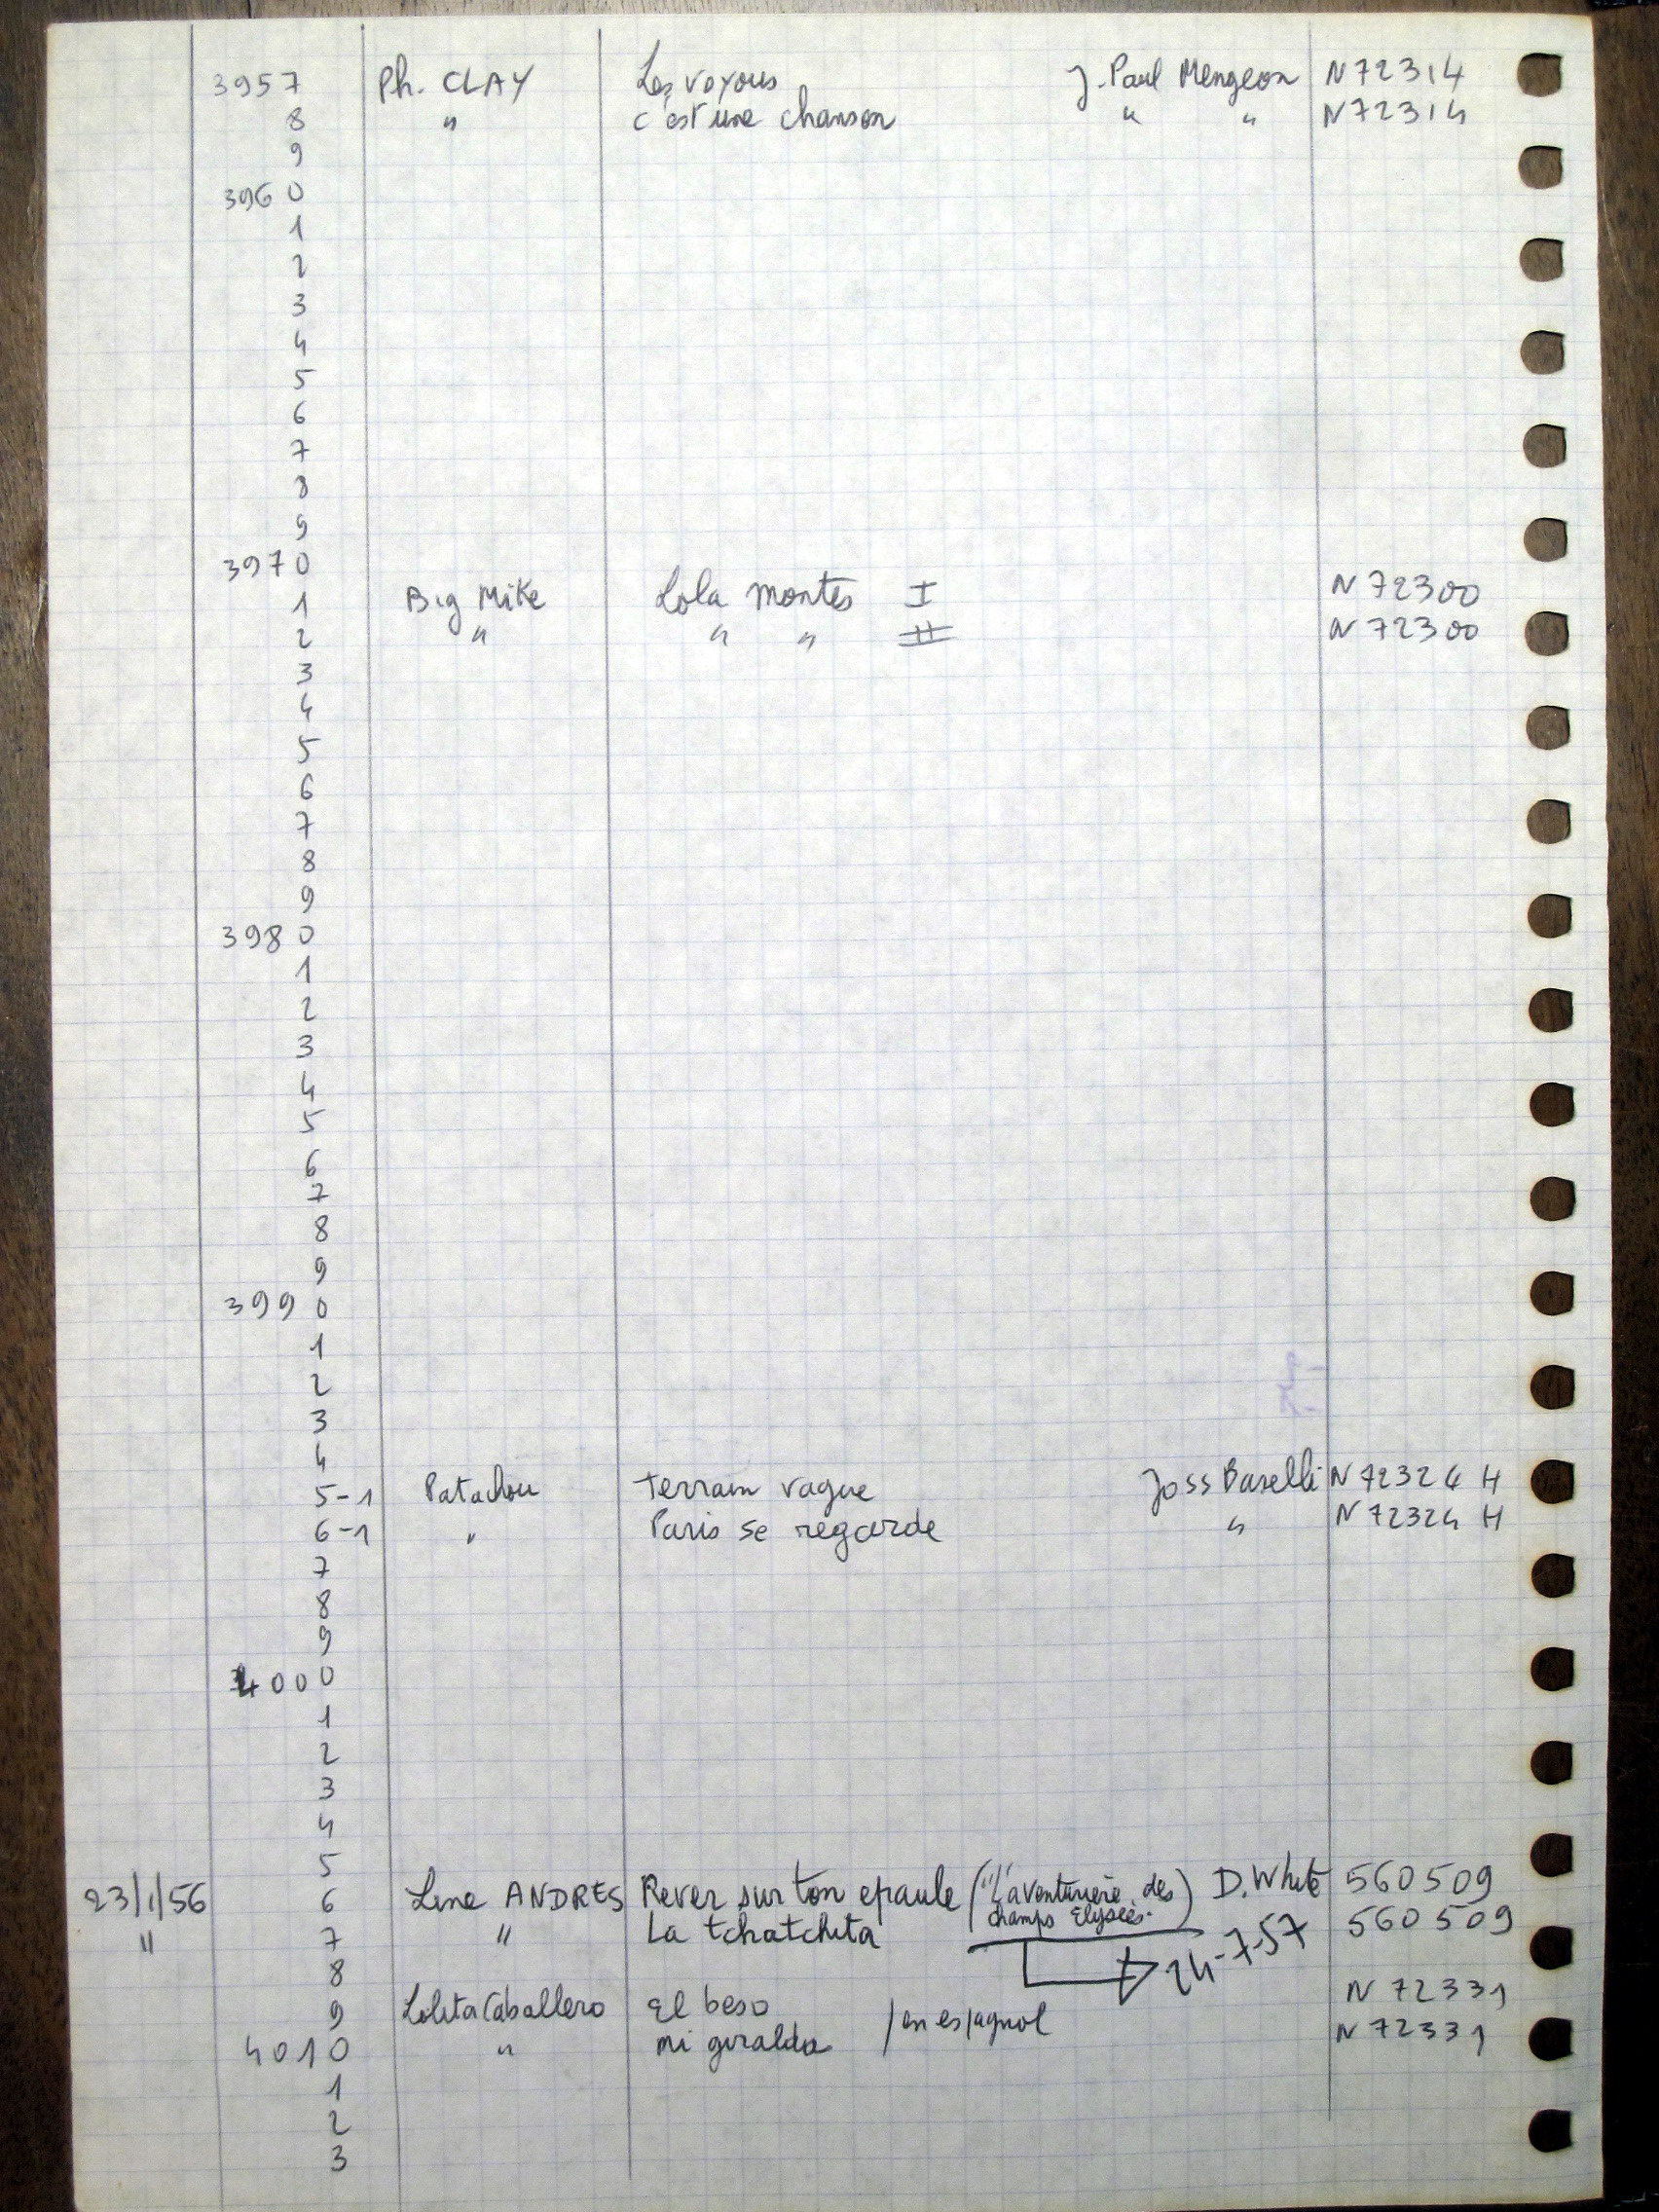 3957 Ph. CLAY Les voyous J. Paul Mengeon N72314
8 " c'est une chanson " " N72314
9
3960
1
2
3
4
5
6
7
8
9
3970
1 Big Mike Lola Montès I N72300
2 " " " II N72300
3
4
5
6
7
8
9
3980
1
2
3
4
5
6
7
8
9
3990
1
2
3
4
5-1 Patachou Terrain vague Joss Baselli N72324 H
6-1 " Paris se regarde " N72324 H
7
8
9
4000
1
2
3
4
5
23/1/56 6 Line ANDRES Rever sur ton epaule ("l'aventurière des champs Elysées.) D. White 560509
" 7 " La tchatchita 24-7-57 560509
8
9 Lolita Caballero El beso / en espagnol N72331
4010 " mi giralda N72331
1
2
3